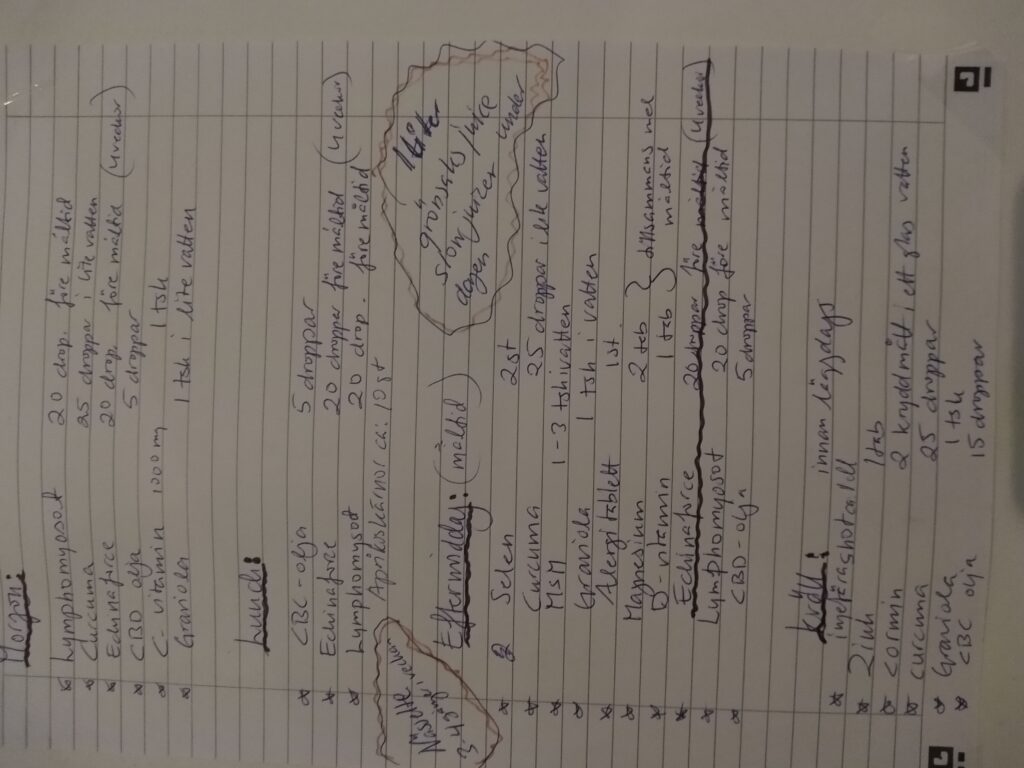 Morgon:
* Lymphomyosot 20 drop. före måltid
* Curcuma 25 droppar i lite vatten
* Echinaforce 20 drop. före måltid (4 veckor)
* CBD olja 5 droppar
* C-vitamin 1000 m 1 tsk
* Graviola 1 tsk i lite vatten
Lunch:
* CBC-olja 5 droppar
* Echinaforce 20 droppar före måltid (4 veckor)
* Lymphomysot 20 drop. före måltid
Aprikoskärnor ca: 10 st
Nässelte
23 4 gång/vecka
1 liter
s grönsaks/juice
slowjuicer under
dagen
Eftermiddag: (måltid)
* Selen 2 st
* Curcuma 25 droppar i lite vatten
* MSM 1-3 tsk i vatten
* Graviola 1 tsk i vatten
* Alergitablett 1 st
* Magnesium 2 tab } tillsammans med
* D-vitamin 1 tab } måltid
* Echinaforce 20 droppar före måltid (4 veckor)
* Lymphomyosot 20 drop före måltid
* CBD-olja 5 droppar
Kväll: innan läggdags
*
* Zink 1 tab
* cormin 2 kryddmått i ett glas vatten
* curcuma 25 droppar
* Graviola 1 tsk
* CBC olja 15 droppar